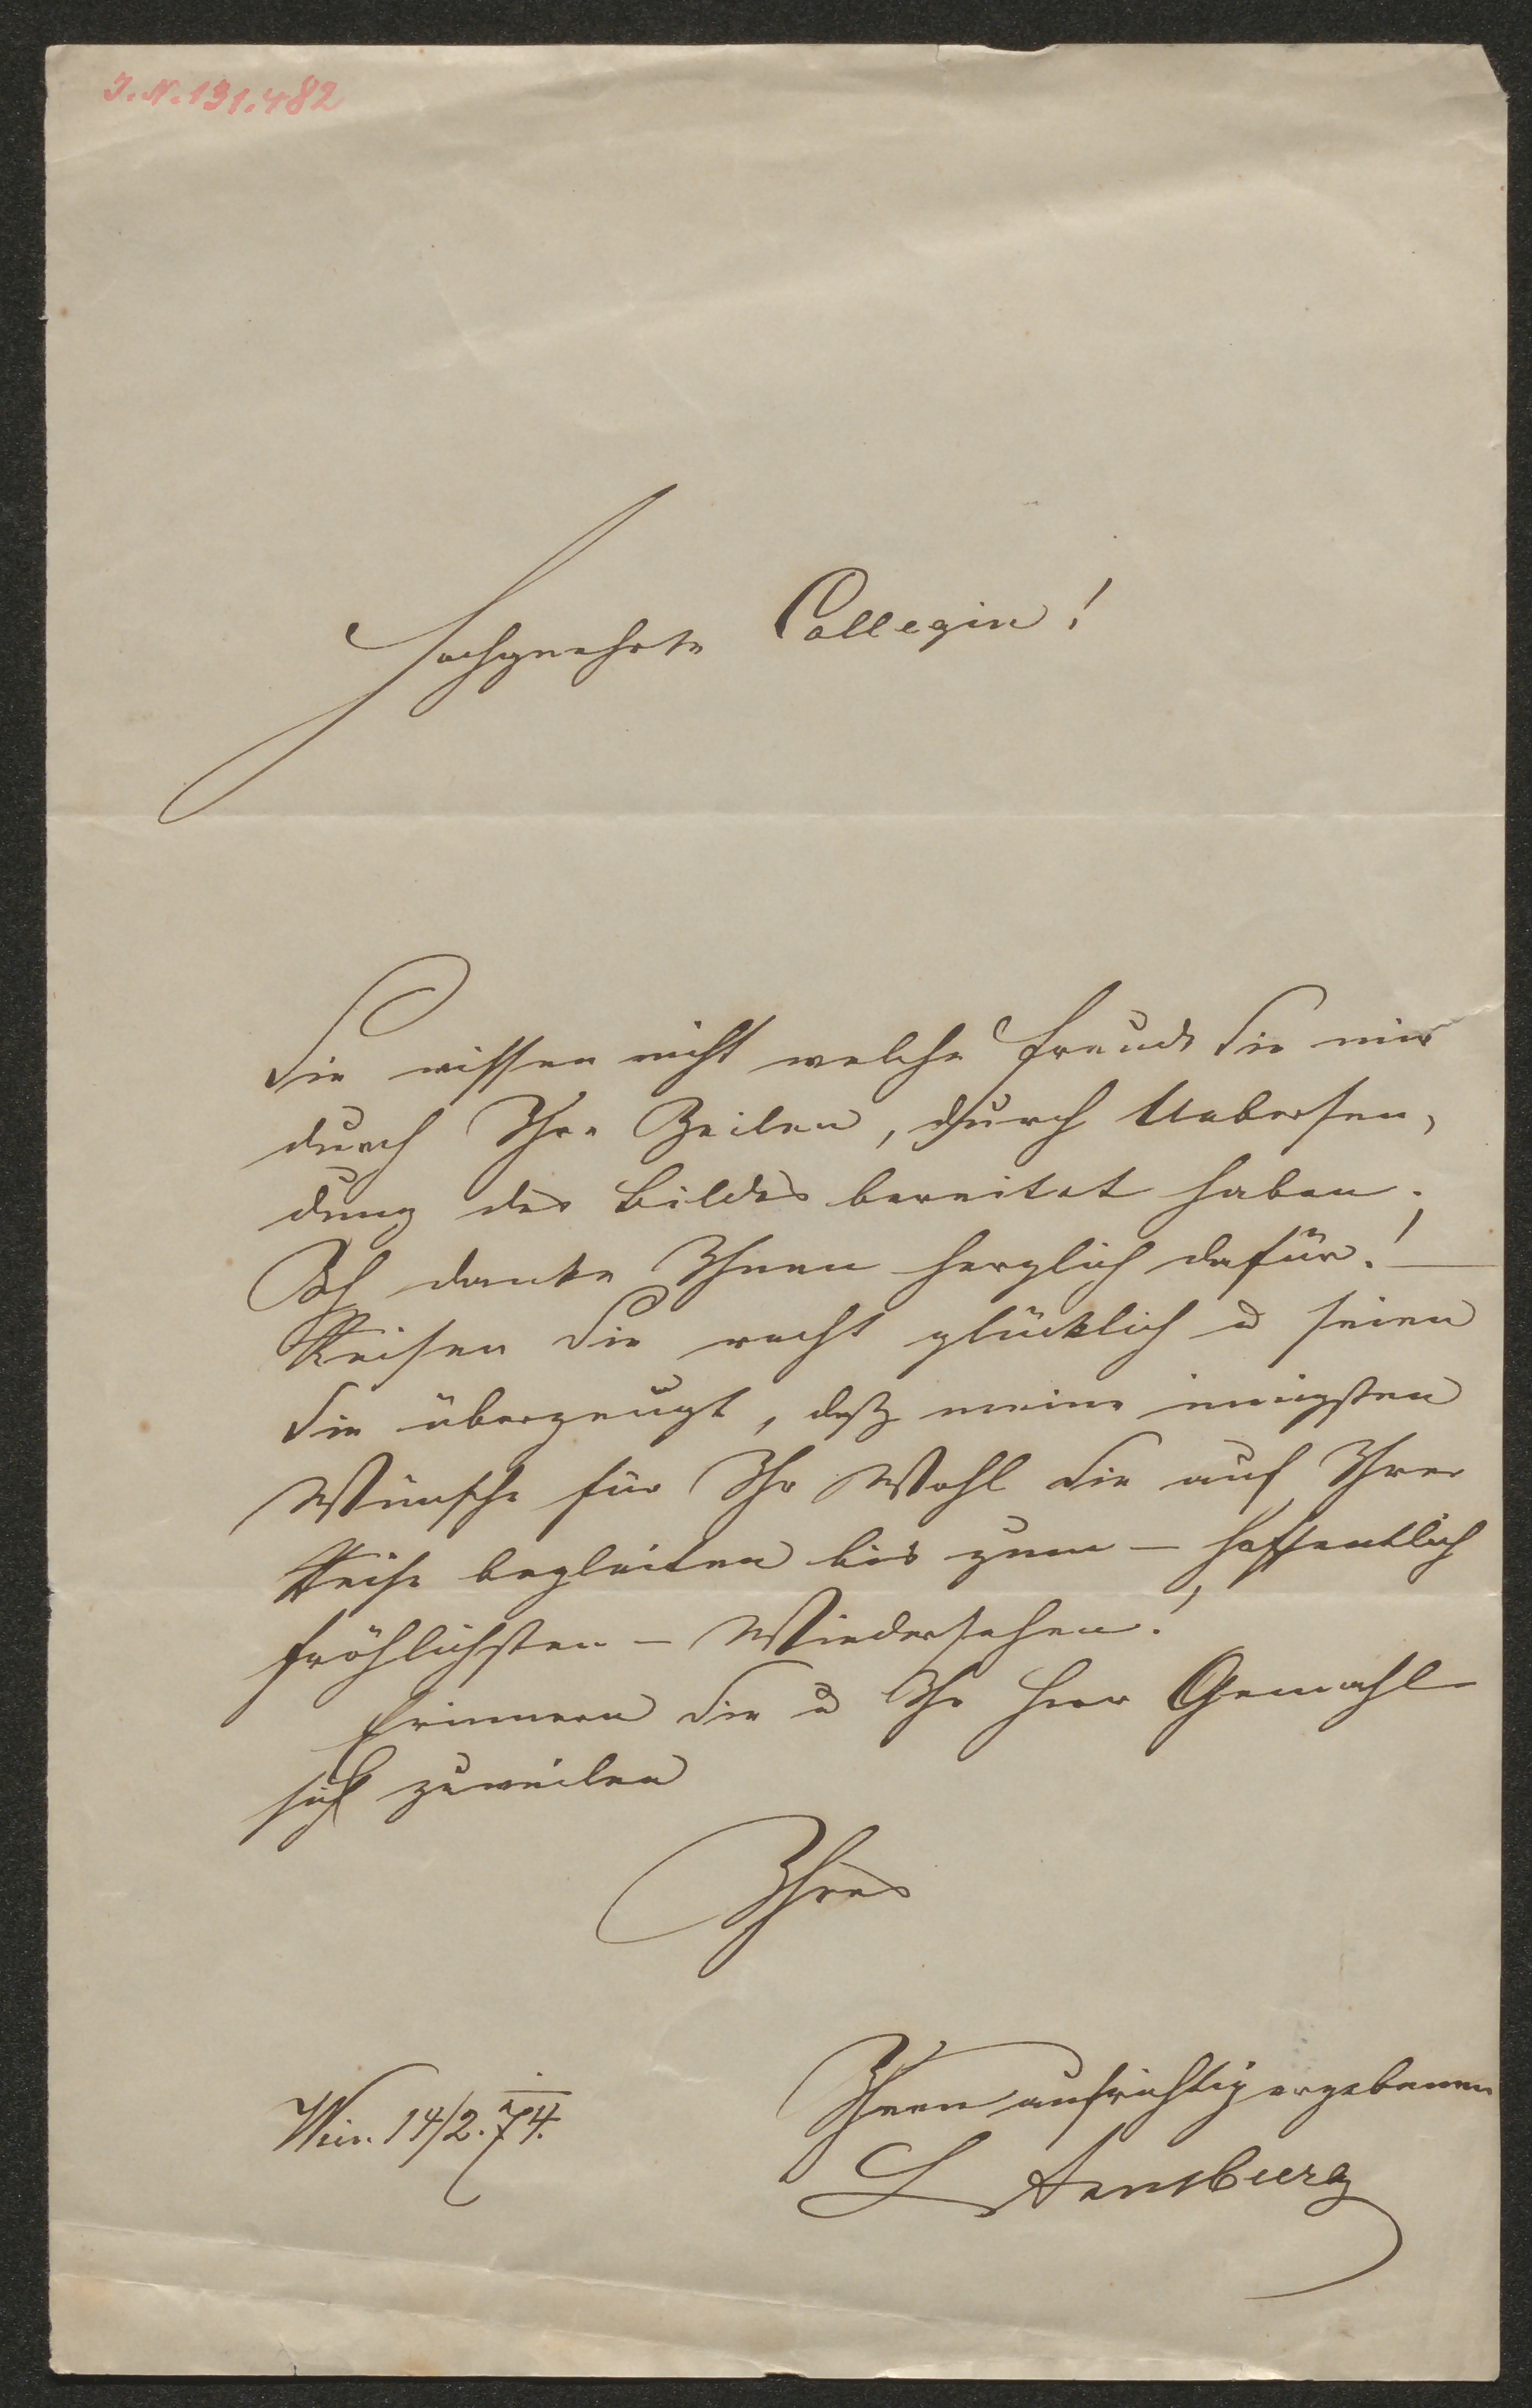 J.N. 131.482
Hochgeehrte Collegin!
Sie wissen nicht welche Freude Sie mir
durch Ihre Zeilen, durch Uebersen,
dung des Bildes bereitet haben.
Ich danke Ihnen herzlich dafür! —
Reisen Sie recht glücklich u seien
Sie überzeugt, daß meine innigsten
Wünsche für Ihr Wohl Sie auf Ihrer
Reise begleiten bis zum — hoffentlich
fröhlichsten — Wiedersehen!
Erinnern Sie u Ihr Herr Gemahl
sich zuweilen
Ihres
Ihnen aufrichtig ergebenen
Wien 14/2. 74.
L Arnsburg